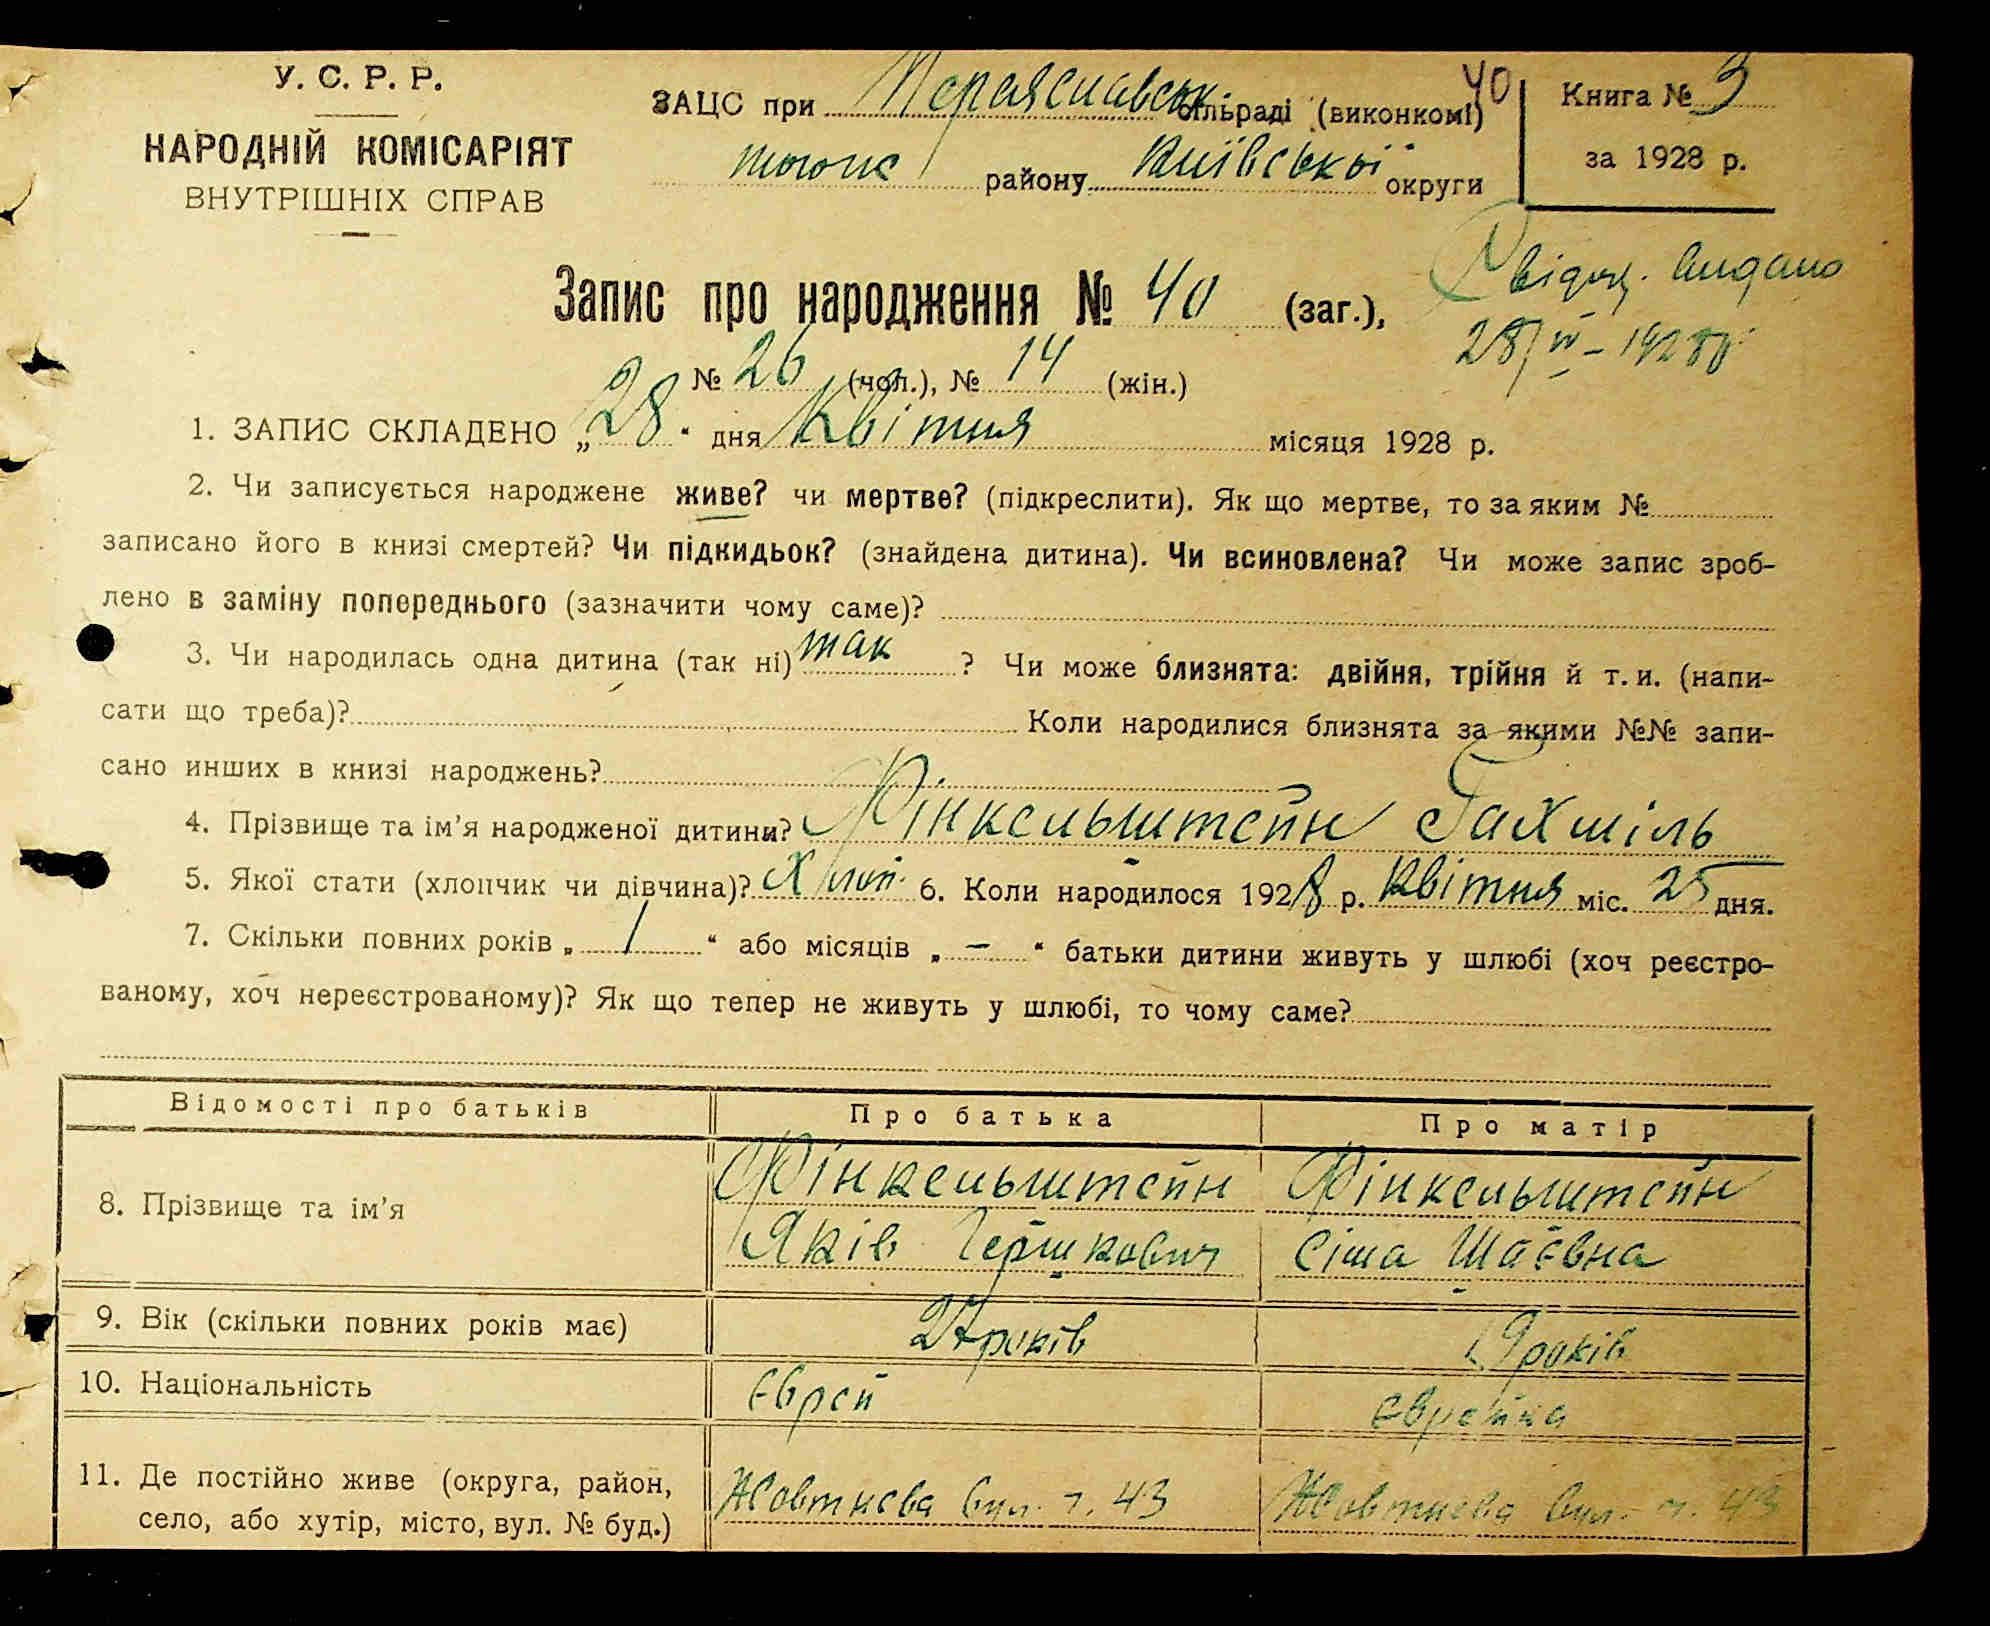 У. С. Р. Р.
НАРОДНІЙ КОМІСАРІЯТ
ВНУТРІШНІХ СПРАВ
40
ЗАЦС при Переяславськ сільраді (виконкомі)
району Київської округи
Книга № 3
за 1928 р.
Запис про народження № 40 (заг.),
Свідоц. видано
28/IV – 1928р.
№ 26 (чол.), № 14 (жін.)
1. ЗАПИС СКЛАДЕНО „28“ дня Квітня місяця 1928 р.
2. Чи записується народжене живе? чи мертве? (підкреслити). Як що мертве, то за яким №
записано його в книзі смертей? Чи підкидьок? (знайдена дитина). Чи всиновлена? Чи може запис зроб-
лено в заміну попереднього (зазначити чому саме)?
3. Чи народилась одна дитина (так ні) так ? Чи може близнята: двійня, трійня й т. и. (напи-
сати що треба)? Коли народилися близнята за якими №№ запи-
сано инших в книзі народжень?
4. Прізвище та ім’я народженої дитини? Фінкельштейн Рахміль
5. Якої стати (хлопчик чи дівчина)? Хлоп. 6. Коли народилося 1928 р. Квітня міс. 25 дня.
7. Скільки повних років „ 1 “ або місяців „ – “ батьки дитини живуть у шлюбі (хоч реєстро-
ваному, хоч нереєстрованому)? Як що тепер не живуть у шлюбі, то чому саме?
Відомості про батьків Про батька Про матір
8. Прізвище та ім’я Фінкельштейн Фінкельштейн
Яків Гершкович Сіма Шаєвна
9. Вік (скільки повних років має) 27 років 19 років
10. Національність Єврей Єврейка
11. Де постійно живе (округа, район, Жовтнева вул. ч. 43 Жовтнева вул. ч. 43
село, або хутір, місто, вул. № буд.)